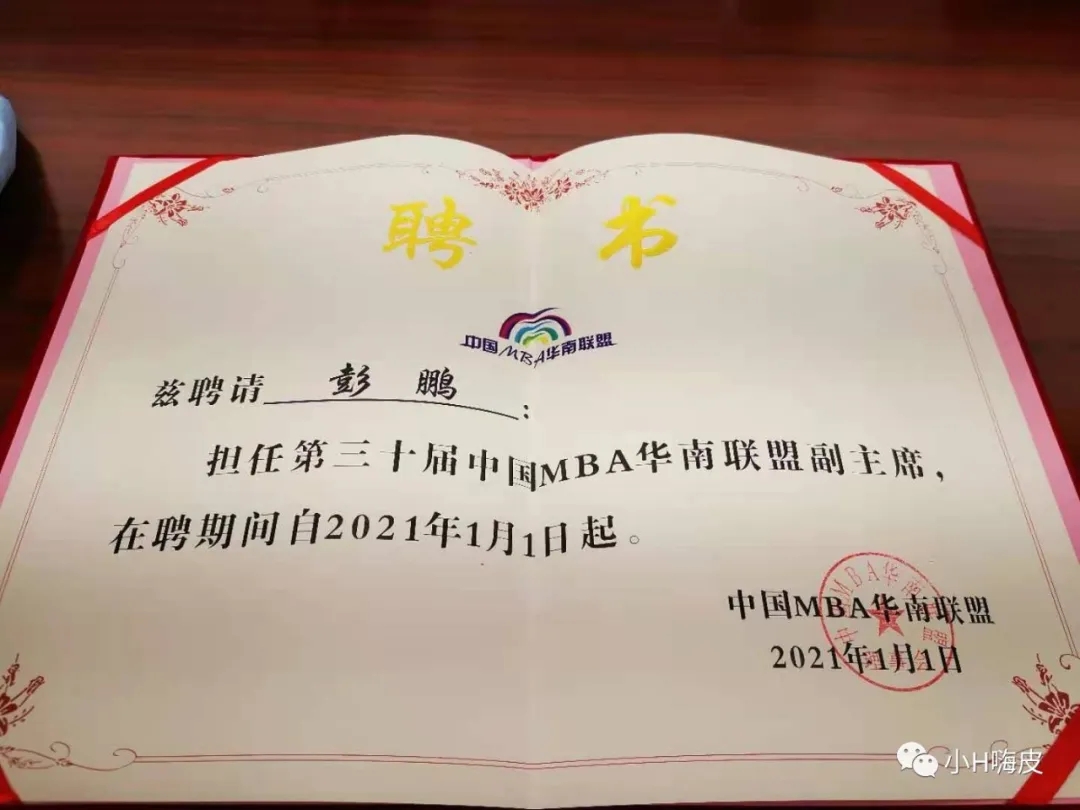 聘 书
中国MBA华南联盟
兹聘请 彭 鹏 :
担任第三十届中国MBA华南联盟副主席,
在聘期间自2021年1月1日起。
中国MBA华南联盟
2021年1月1日
中国MBA华南联盟
理事会
小H嗨皮